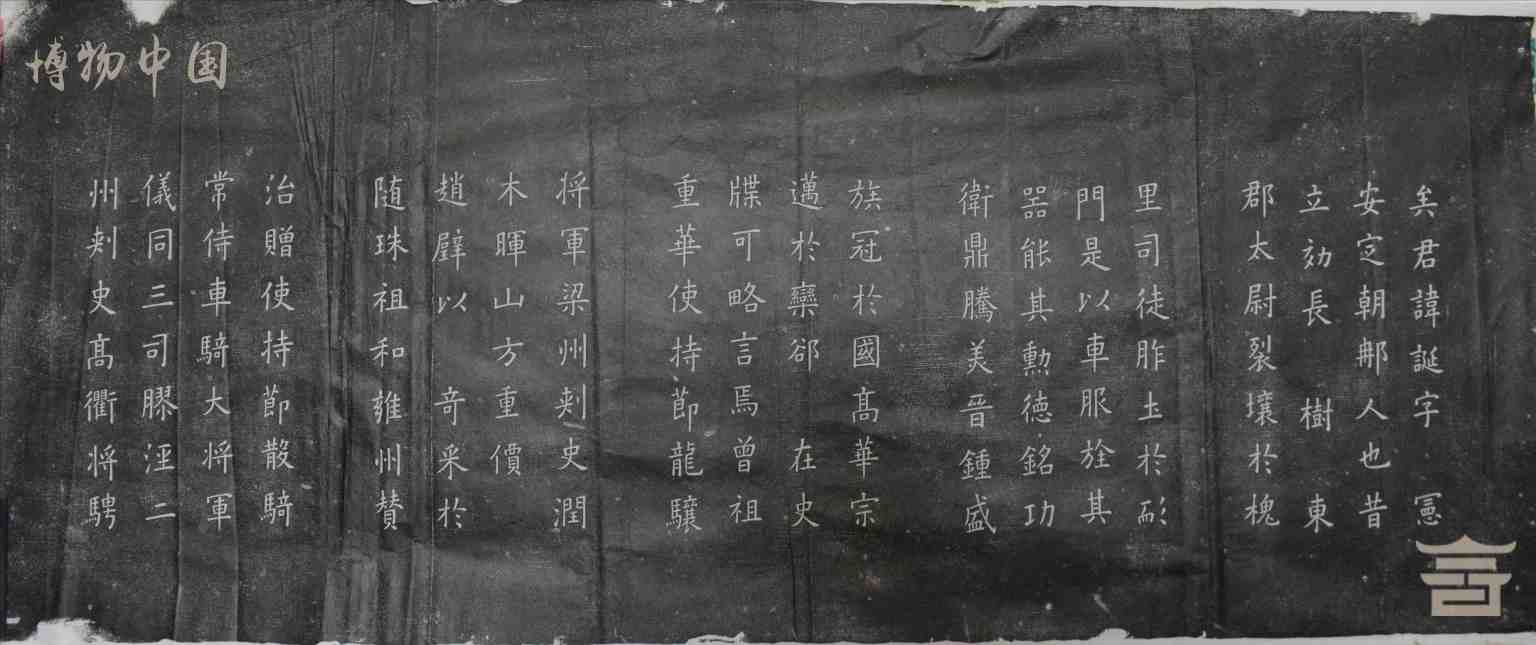 博物中国
矣君諱誕字憲
安定朝那人也昔
立効長樹東
郡太尉裂壤於槐
里司徒胙土於耏
門是以車服旌其
器能其勲德銘功
衛鼎騰美晉鍾盛
族冠於國髙華宗
邁於欒郤在史
牒可略言焉曾祖
重華使持節龍驤
将軍梁州刾史潤
木暉山方重價
趙璧以奇采於
随珠祖和雍州賛
治贈使持節散騎
常侍車騎大将軍
儀同三司膠涇二
州刾史髙衢将騁